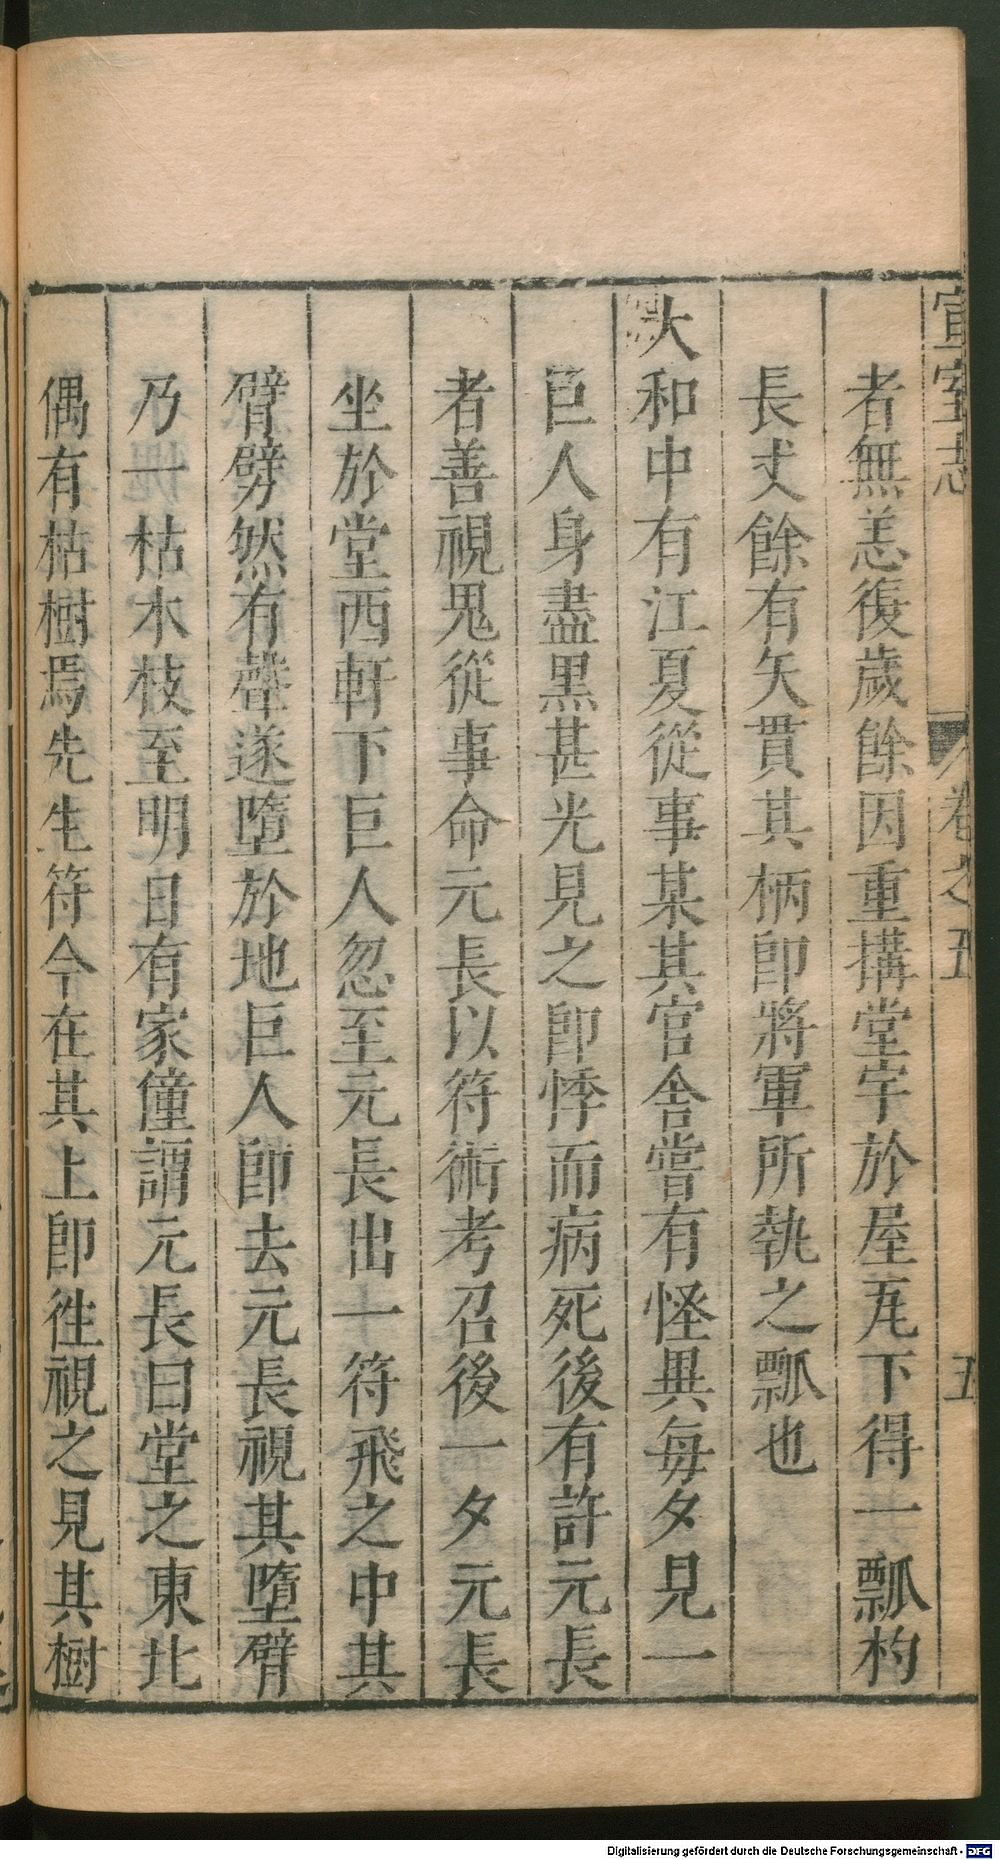 宣室志 卷之五 五
者無恙復歲餘因重搆堂宇於屋瓦下得一瓢杓
長丈餘有矢貫其柄卽將軍所執之瓢也
大和中有江夏從事某其官舍嘗有怪異每夕見一
巨人身盡黑甚光見之卽悸而病死後有許元長
者善視鬼從事命元長以符術考召後一夕元長
坐於堂西軒下巨人忽至元長出一符飛之中其
臂劈然有聲遂墮於地巨人卽去元長視其墮臂
乃一枯木枝至明日有家僮謂元長曰堂之東北
偶有枯樹焉先生符今在其上卽徃視之見其樹
Digitalisierung gefördert durch die Deutsche Forschungsgemeinschaft - DFG